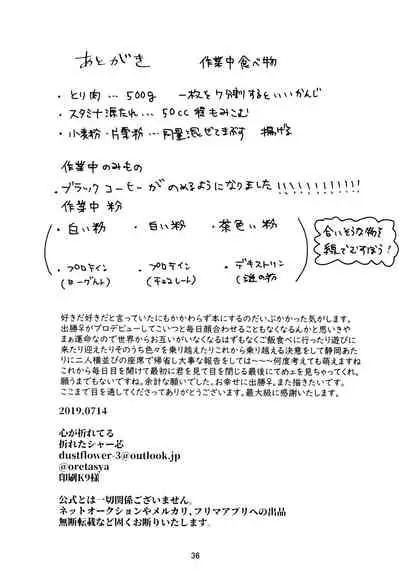 あとがき 作業中食べ物
・とり肉… 500g 一枚を7分割するといいかんじ
・スタミナ源たれ… 50cc 程もみこむ
・小麦粉・片栗粉… 同量混ぜてまぶす 揚げる
作業中のみもの
・ブラックコーヒーがのめるようになりました!!!!!!!!!!!
作業中 粉
・白い粉 ・白い粉 ・茶色い粉
・プロテイン(ヨーグルト) ・プロテイン(チョコレート) ・デキストリン(謎の粉)
合いそうな物を組んでですぼう!
好きだ好きだと言っていたにもかかわらず本にするのだいぶかかった気がします。
出勝♀がプロデビューしてこいつと毎日顔合わせることもなくなるんかと思いきや
まぁ運命なので世界からお互いがいなくなるはずもなくご飯食べに行ったり遊びに
来たり迎えたりそのうち色々を乗り越えたりこれから乗り越える決意をして静岡あた
りに二人横並びの座席で帰省し大事な報告をしては~~~何度考えても萌えますね
これから毎日目を開けて最初に君を見て目を閉じる最後にてめェを見ちゃってくれ。
願うまでもないですね。余計な願いでした。お幸せに出勝♀。また描きたいです。
ここまで目を通してくださってありがとうございます。最大級に感謝いたします。
2019.0714
心が折れてる
折れたシャー芯
dustflower-3@outlook.jp
@oretasya
印刷K9様
公式とは一切関係ございません。
ネットオークションやメルカリ、フリマアプリへの出品
無断転載など固くお断りいたします。
36